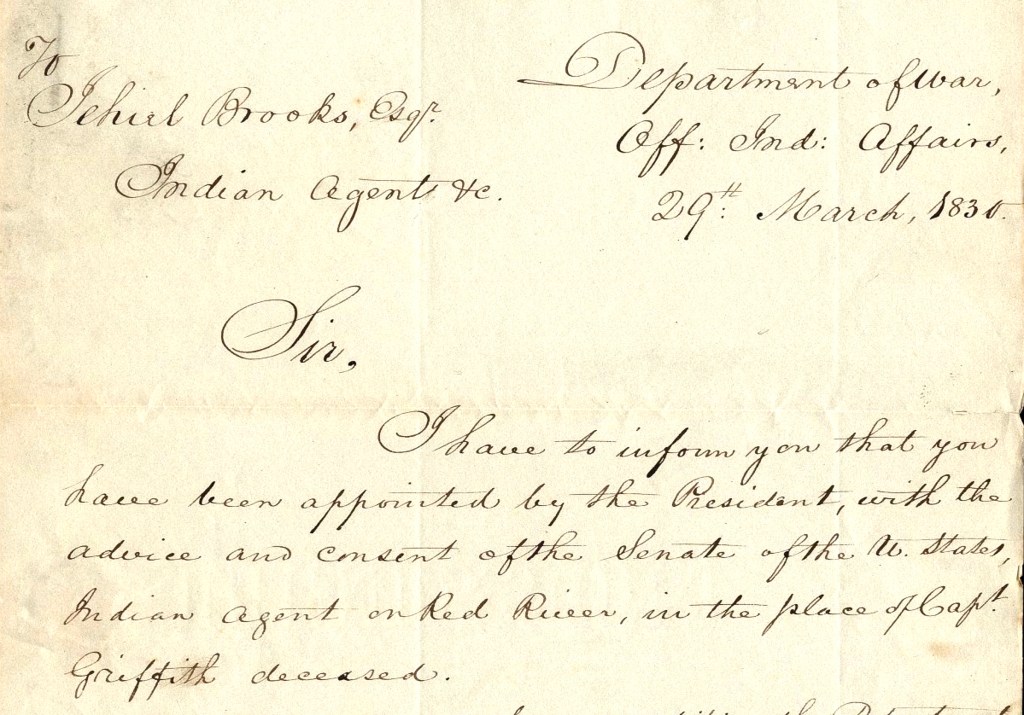 To
Jehiel Brooks, Esqr.
Indian Agent &c.
Department of War,
Off: Ind: Affairs,
29th: March, 1830.
Sir,
I have to inform you that you
have been appointed by the President, with the
advice and consent of the Senate of the U. States,
Indian Agent on Red River, in the place of Capt.
Griffith deceased.